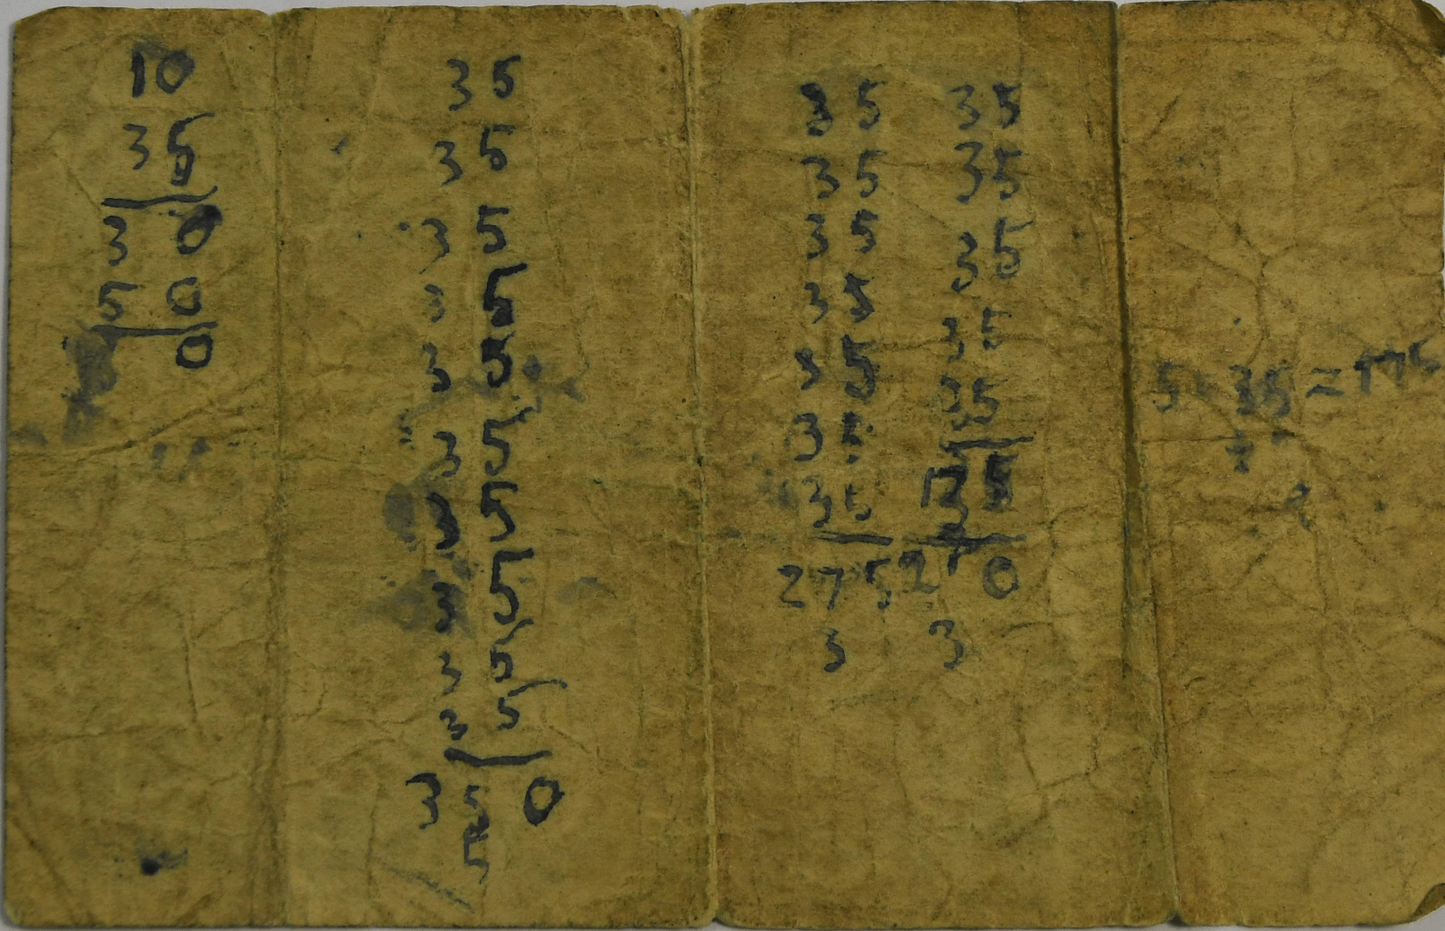 10
35
30
50
0
35
35
35
35
35
35
35
35
35
35
350
5
35
35
35
35
35
35
35
275
3
35
35
35
35
35
35
3
5 35 = 175